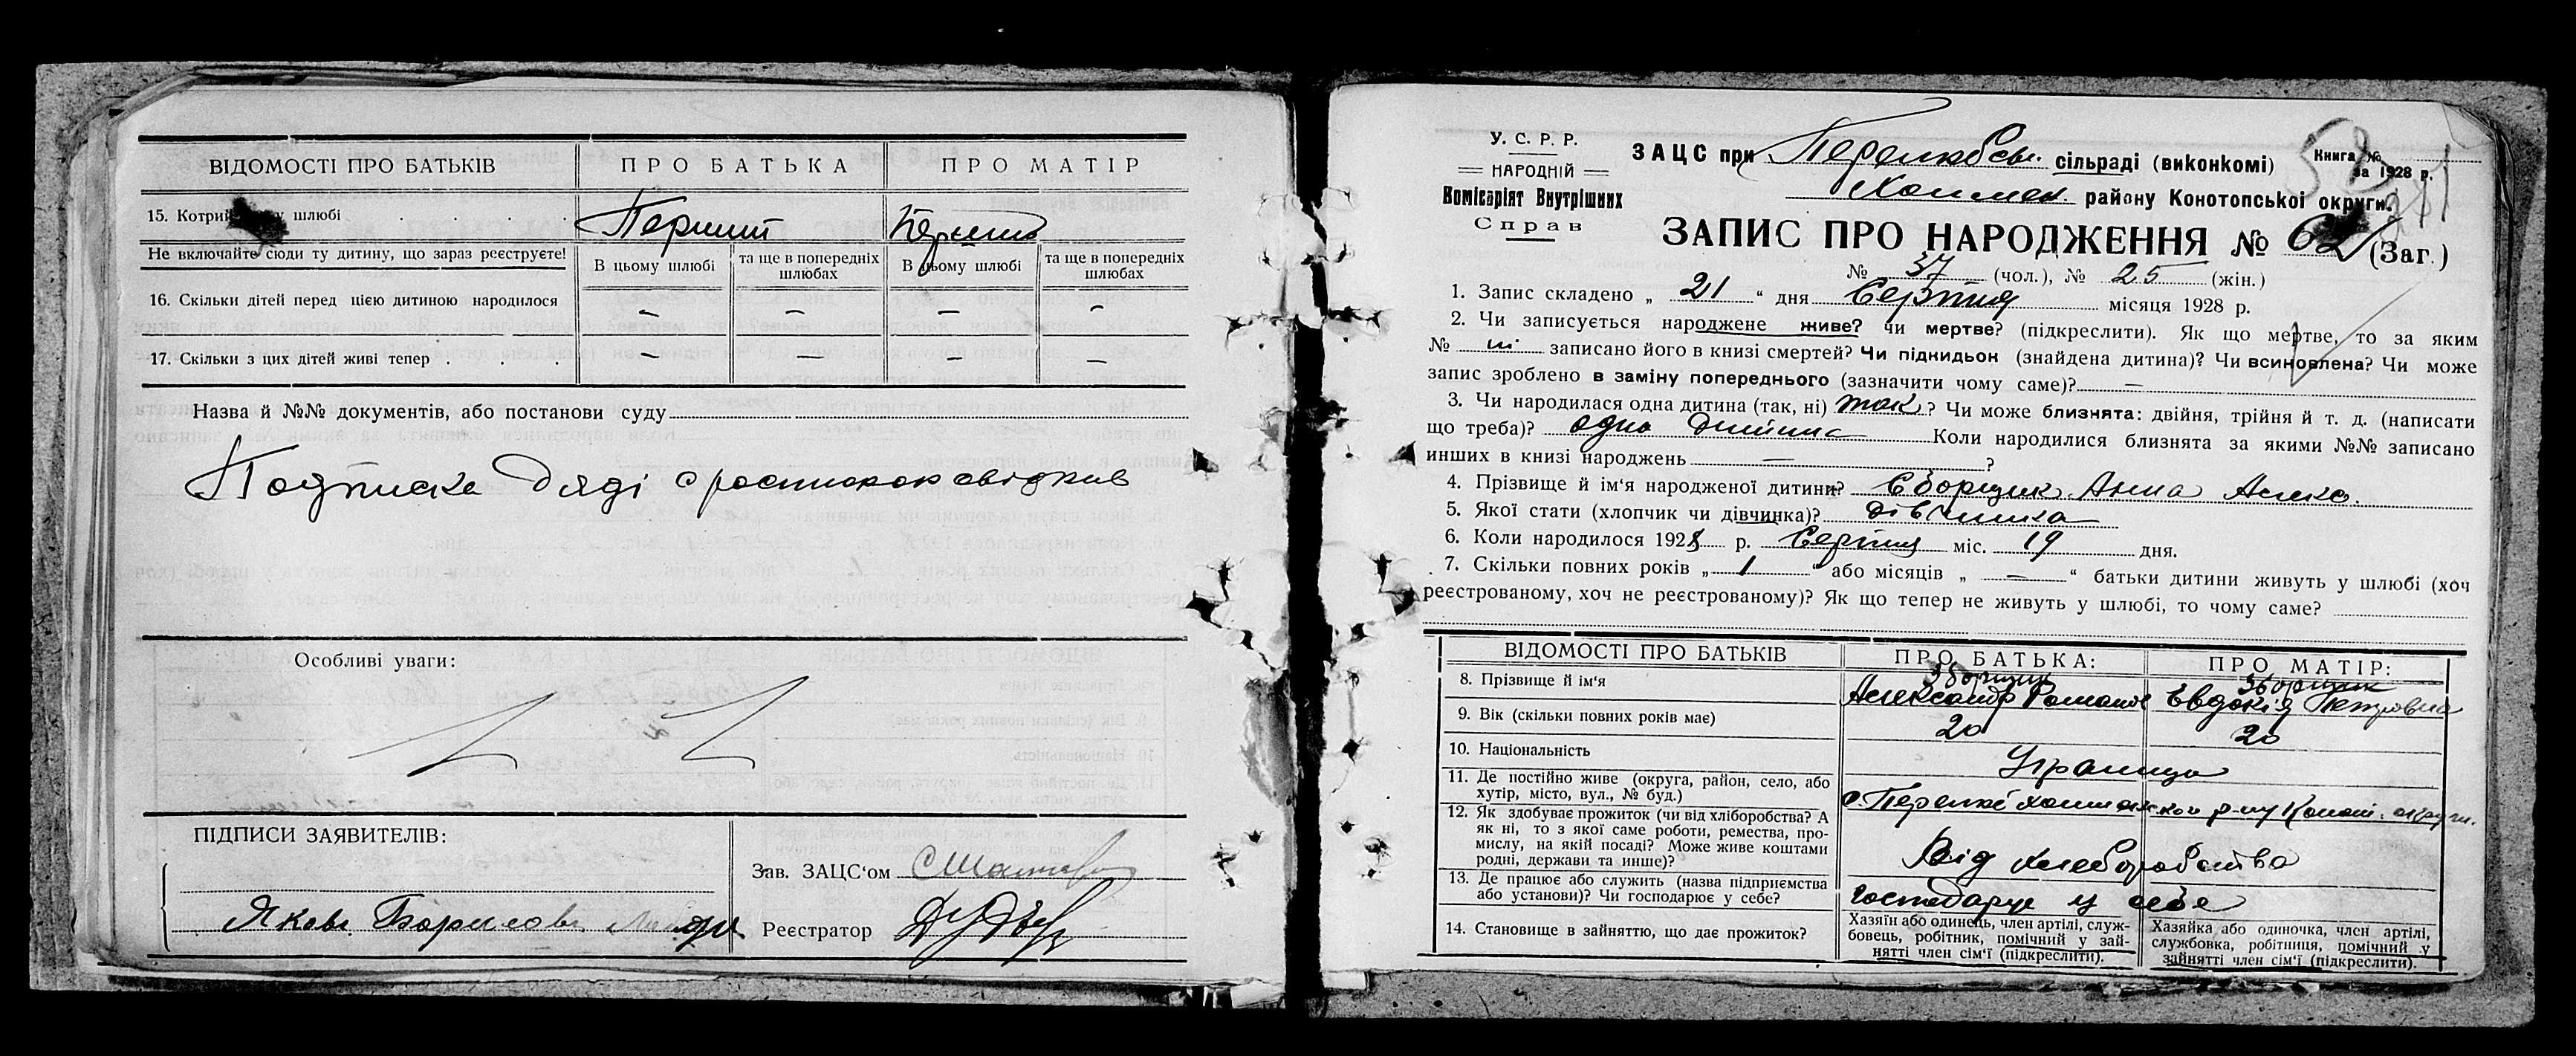 ВІДОМОСТІ ПРО БАТЬКІВ ПРО БАТЬКА ПРО МАТІР
15. Котрий шлюбі Перший Перший
Не включайте сюди ту дитину, що зараз реєструєте! В цьому шлюбі та ще в попередніх шлюбах В цьому шлюбі та ще в попередніх шлюбах
16. Скільки дітей перед цією дитиною народилося — — — —
17. Скільки з цих дітей живі тепер — — — —
Назва й №№ документів, або постанови суду
Подписка
Особливі уваги:
ПІДПИСИ ЗАЯВИТЕЛІВ:
Зав. ЗАЦС'ом
Яков Борисов
Реєстратор
У. С. Р. Р.
НАРОДНІЙ
Комісаріят Внутрішних
Справ
ЗАЦС при сільраді (виконкомі) Книга №
за 1928 р.
району Конотопської округи.
ЗАПИС ПРО НАРОДЖЕННЯ № 62 (Заг.)
№ 37 (чол.), № 25 (жін.)
1. Запис складено „ 21 “ дня Серпня місяця 1928 р.
2. Чи записується народжене живе? чи мертве? (підкреслити). Як що мертве, то за яким
№ ні записано його в книзі смертей? Чи підкидьок (знайдена дитина)? Чи всиновлена? Чи може
запис зроблено в заміну попереднього (зазначити чому саме)? —
3. Чи народилася одна дитина (так, ні) так ? Чи може близнята: двійня, трійня й т. д. (написати
що треба)? одна дитина Коли народилися близнята за якими №№ записано
инших в книзі народжень — ?
4. Прізвище й ім'я народженої дитини? Сборщик Анна Алекс.
5. Якої стати (хлопчик чи дівчинка)? дівчинка
6. Коли народилося 1928 р. Серпня міс. 19 дня.
7. Скільки повних років „ 1 “ або місяців „ — “ батьки дитини живуть у шлюбі (хоч
реєстрованому, хоч не реєстрованому)? Як що тепер не живуть у шлюбі, то чому саме?
ВІДОМОСТІ ПРО БАТЬКІВ ПРО БАТЬКА: ПРО МАТІР:
8. Прізвище й ім'я Зборщик Александр Романов Зборщик Евдокія Петровна
9. Вік (скільки повних років має) 20 20
10. Національність Українці
11. Де постійно живе (округа, район, село, або
хутір, місто, вул., № буд.)
12. Як здобуває прожиток (чи від хліборобства? А
як ні, то з якої саме роботи, ремества, про-
мислу, на якій посаді? Може живе коштами
родні, держави та инше)? Від хлеборобства
13. Де працює або служить (назва підприємства
або установи)? Чи господарює у себе? господарує у себе
14. Становище в зайняттю, що дає прожиток?
Хазяїн або одинець, член артілі, служ-
бовець, робітник, помічний у зай-
нятті член сім'ї (підкреслити).
Хазяйка або одиночка, член артілі,
службовка, робітниця, помічний у
зайнятті член сім'ї (підкреслити).